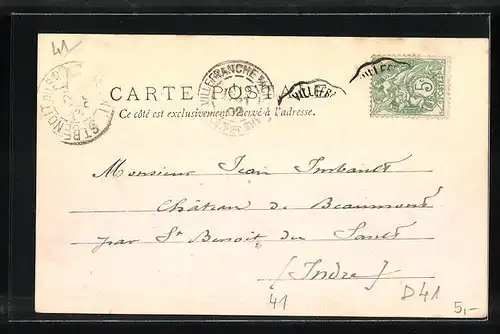 41
ST BENOIT DU S
VILLEFRANCHE
02
VILLEFR
VILLEFR
5
CARTE POSTALE
Ce côté est exclusivement réservé à l'adresse.
Monsieur Jean Imbault
Château de Beaumont
par St Benoit du Sault
(Indre)
41
D41
5,-